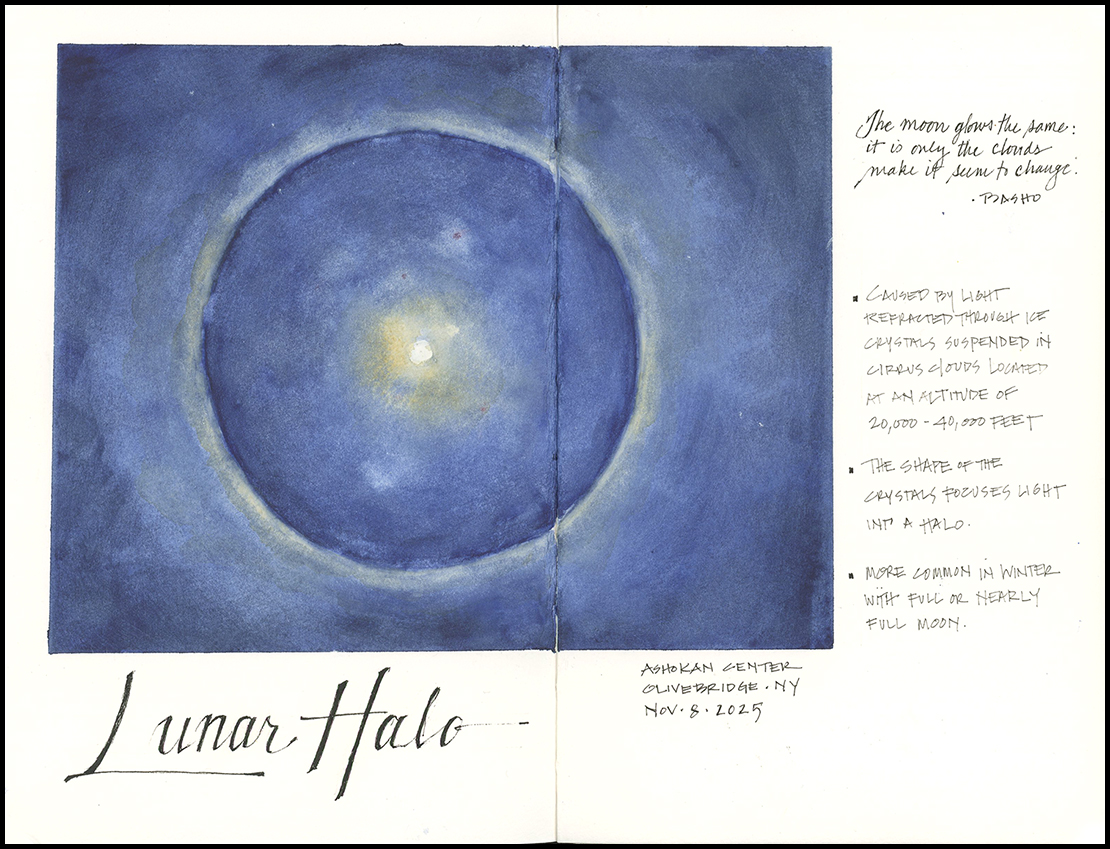 The moon glows the same:
it is only the clouds
make it seem to change.
· BASHO
▪ CAUSED BY LIGHT
REFRACTED THROUGH ICE
CRYSTALS SUSPENDED IN
CIRRUS CLOUDS LOCATED
AT AN ALTITUDE OF
20,000 - 40,000 FEET
▪ THE SHAPE OF THE
CRYSTALS FOCUSES LIGHT
INTO A HALO.
▪ MORE COMMON IN WINTER
WITH FULL OR NEARLY
FULL MOON.
ASHOKAN CENTER
OLIVEBRIDGE · NY
NOV · 8 · 2025
Lunar Halo